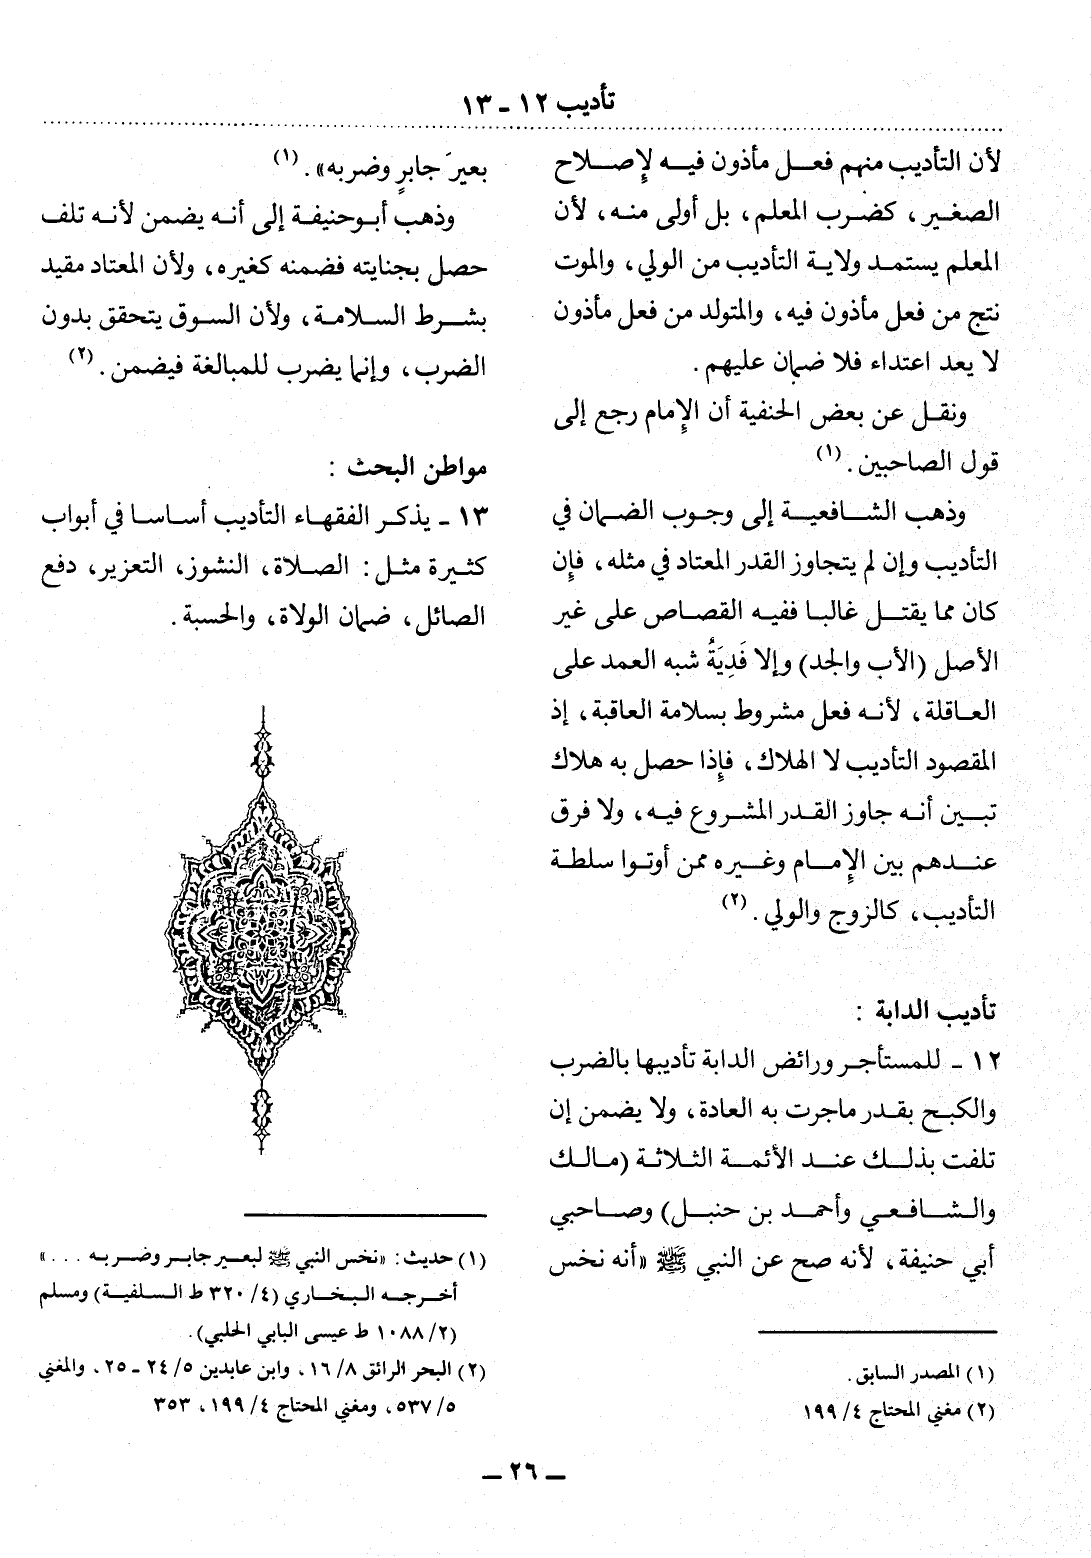 تأديب ١٢ - ١٣
لأن التأديب منهم فعل مأذون فيه لإصلاح
الصغير، كضرب المعلم، بل أولى منه، لأن
المعلم يستمد ولاية التأديب من الولي، والموت
نتج من فعل مأذون فيه، والمتولد من فعل مأذون
لا يعد اعتداء فلا ضمان عليهم.
ونقل عن بعض الحنفية أن الإمام رجع إلى
قول الصاحبين. (١)
وذهب الشافعية إلى وجوب الضمان في
التأديب وإن لم يتجاوز القدر المعتاد في مثله، فإن
كان مما يقتل غالبا ففيه القصاص على غير
الأصل (الأب والجد) وإلا فَدِيَةُ شبه العمد على
العاقلة، لأنه فعل مشروط بسلامة العاقبة، إذ
المقصود التأديب لا الهلاك، فإذا حصل به هلاك
تبين أنه جاوز القدر المشروع فيه، ولا فرق
عندهم بين الإمام وغيره ممن أوتوا سلطة
التأديب، كالزوج والولي. (٢)
تأديب الدابة :
١٢ - للمستأجر ورائض الدابة تأديبها بالضرب
والكبح بقدر ماجرت به العادة، ولا يضمن إن
تلفت بذلك عند الأئمة الثلاثة (مالك
والشافعي وأحمد بن حنبل) وصاحبي
أبي حنيفة، لأنه صح عن النبي ﷺ «أنه نخس
(١) المصدر السابق.
(٢) مغني المحتاج ٤/ ١٩٩
بعيرَ جابرٍ وضربه». (١)
وذهب أبوحنيفة إلى أنه يضمن لأنه تلف
حصل بجنايته فضمنه كغيره، ولأن المعتاد مقيد
بشرط السلامة، ولأن السوق يتحقق بدون
الضرب، وإنما يضرب للمبالغة فيضمن. (٢)
مواطن البحث :
١٣ - يذكر الفقهاء التأديب أساسا في أبواب
كثيرة مثل: الصلاة، النشوز، التعزير، دفع
الصائل، ضمان الولاة، والحسبة.
(١) حديث: «نخس النبي ﷺ لبعير جابر وضربه . . . »
أخرجه البخاري (٤/ ٣٢٠ ط السلفية) ومسلم
(٢/ ١٠٨٨ ط عيسى البابي الحلبي).
(٢) البحر الرائق ٨/ ١٦، وابن عابدين ٥/ ٢٤ - ٢٥، والمغني
٥/ ٥٣٧، ومغني المحتاج ٤/ ١٩٩، ٣٥٣
- ٢٦ -